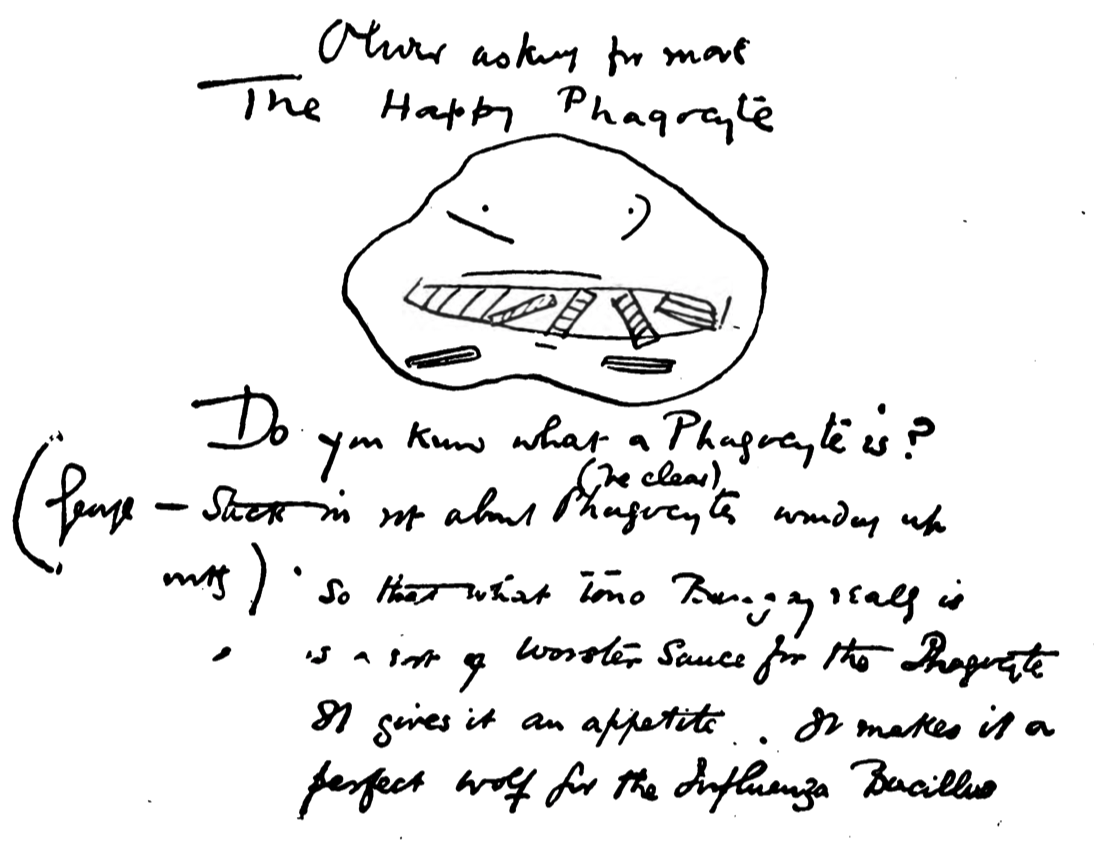 Oliver asking for more
The Happy Phagocyte
Do you know what a Phagocyte is?
(be clear)
(George – Stick in rot about Phagocytes winding up
with)
So that what Tono Bungay really is
is a sort of Worster Sauce for the Phagocyte
It gives it an appetite. It makes it a
perfect wolf for the Influenza Bacillus